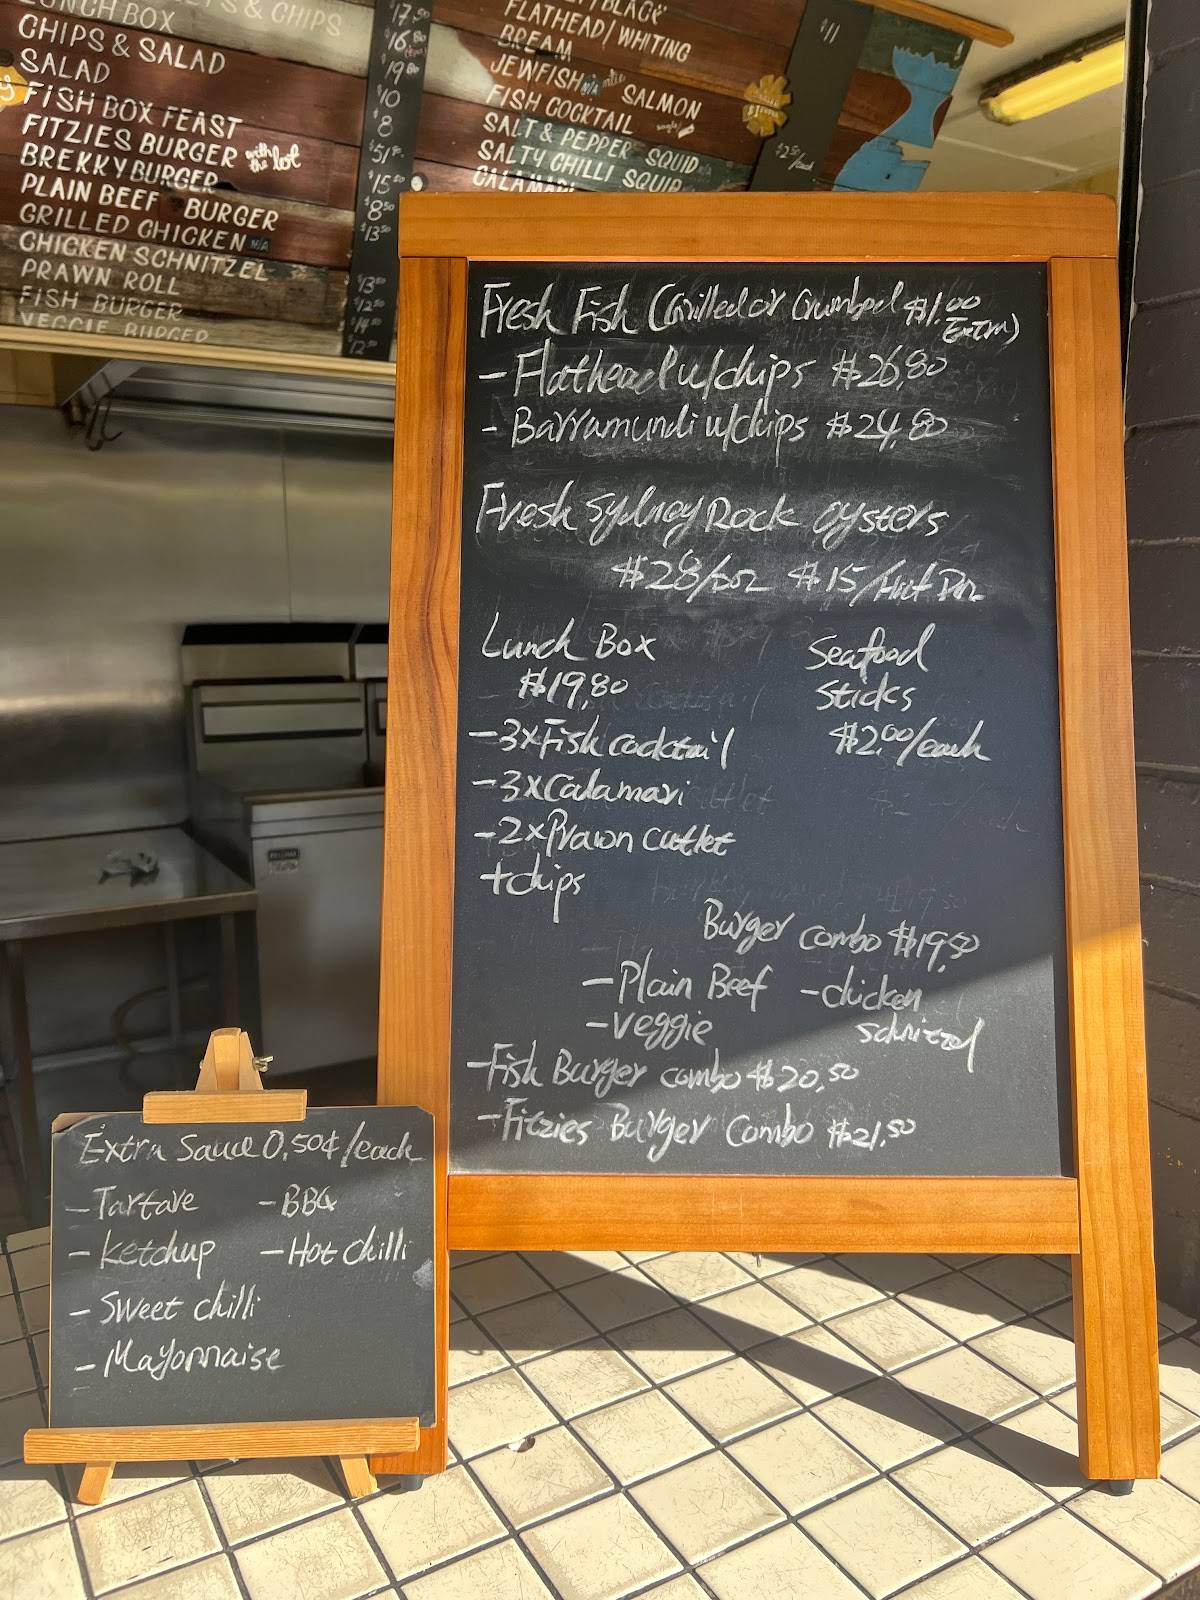 LUNCH BOX
& CHIPS
CHIPS & SALAD
SALAD
FISH BOX FEAST
FITZIES BURGER with the lot
BREKKY BURGER
PLAIN BEEF BURGER
GRILLED CHICKEN N/A
CHICKEN SCHNITZEL
PRAWN ROLL
FISH BURGER
VEGGIE BURGER
$17.50
$16.80
$19.80
$10
$8
$15.50
$8.50
$13.50
$13.50
$12.50
$14.50
$12.50
FLATHEAD/WHITING
BREAM
JEWFISH N/A SALMON
FISH COCKTAIL
SALT & PEPPER SQUID
SALTY CHILLI SQUID
CALAMARI
$11
$2.50/each
Fresh Fish (Grilled or Crumbed $1.00 Extra)
- Flathead w/chips $26.80
- Barramundi w/chips $24.80
Fresh Sydney Rock oysters
$28/Doz $15/Half Doz
Lunch Box
$19.80
- 3xFish cocktail
- 3xCalamari
- 2xPrawn cutlet
+chips
Seafood
Sticks
$2.00/each
Burger combo $19.50
- Plain Beef - chicken schnitzel
- veggie
- Fish Burger combo $20.50
- Fitzies Burger Combo $21.50
Extra Sauce 0.50¢/each
- Tartare - BBQ
- Ketchup - Hot chilli
- Sweet chilli
- Mayonnaise